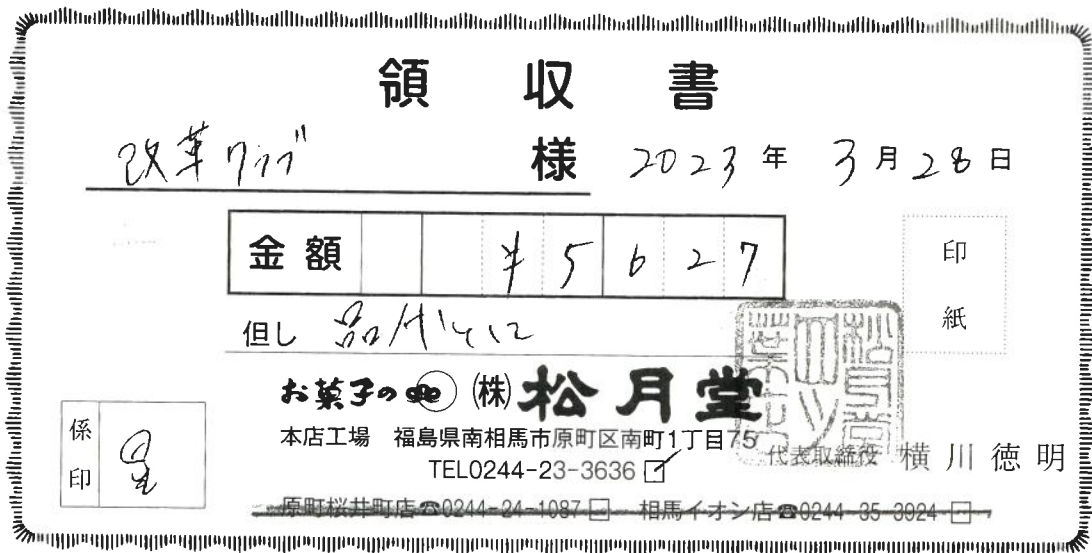 領収書
改革クラブ 様 2023年3月28日
金額 ¥5627
印紙
但し 品代として
お菓子の (株)松月堂
本店工場 福島県南相馬市原町区南町1丁目75
TEL0244-23-3636
代表取締役 横川徳明
係印 星
原町桜井町店☎0244-24-1087 相馬イオン店☎0244-35-3924